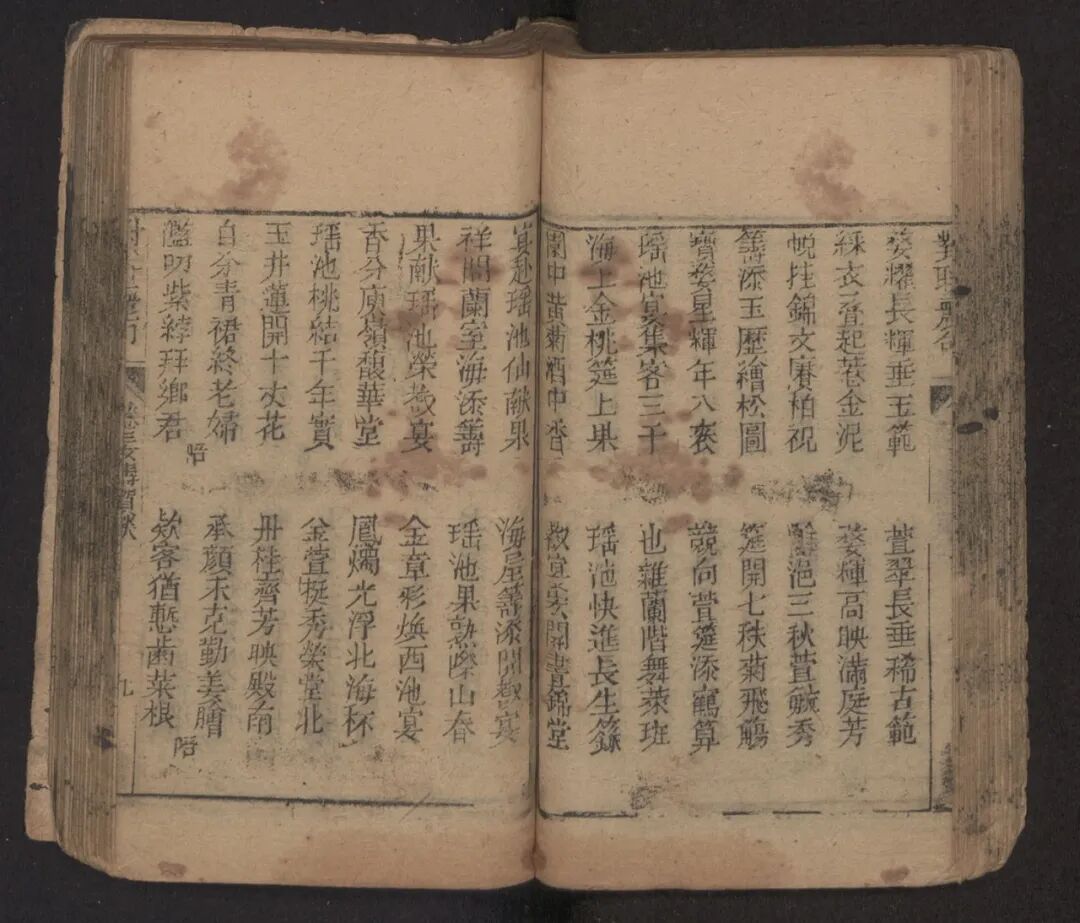 對聯彙合
婺耀長輝垂玉範
萱翠長垂稀古範
綵衣起巷金泥
婺輝高映滿庭芳
帨挂錦文賡柏祝
浥三秋萱毓秀
籌添玉歷繪松圖
筵開七秩菊飛觴
寶婺星輝年八袠
競向萱筵添鶴算
瑶池宴集客三千
也雜蘭階舞萊班
海上金桃筵上果
瑶池快進長生籙
中黄菊酒中香
宜開晝錦堂
宴赴瑶池仙献果
海屋籌添開宴
祥開蘭室海添籌
瑶池果熟山春
果献瑶池榮宴
金章彩煥西池宴
香分庾嶺馥華堂
鳳燭光浮北海杯
瑶池桃結千年實
金萱挺秀榮堂北
玉井蓮開十丈花
丹桂齊芳映殿前
自分青裙終老婦
承顔未克勤姜膾
叨紫綍拜鄉君
欸客猶慙齒菜根
九